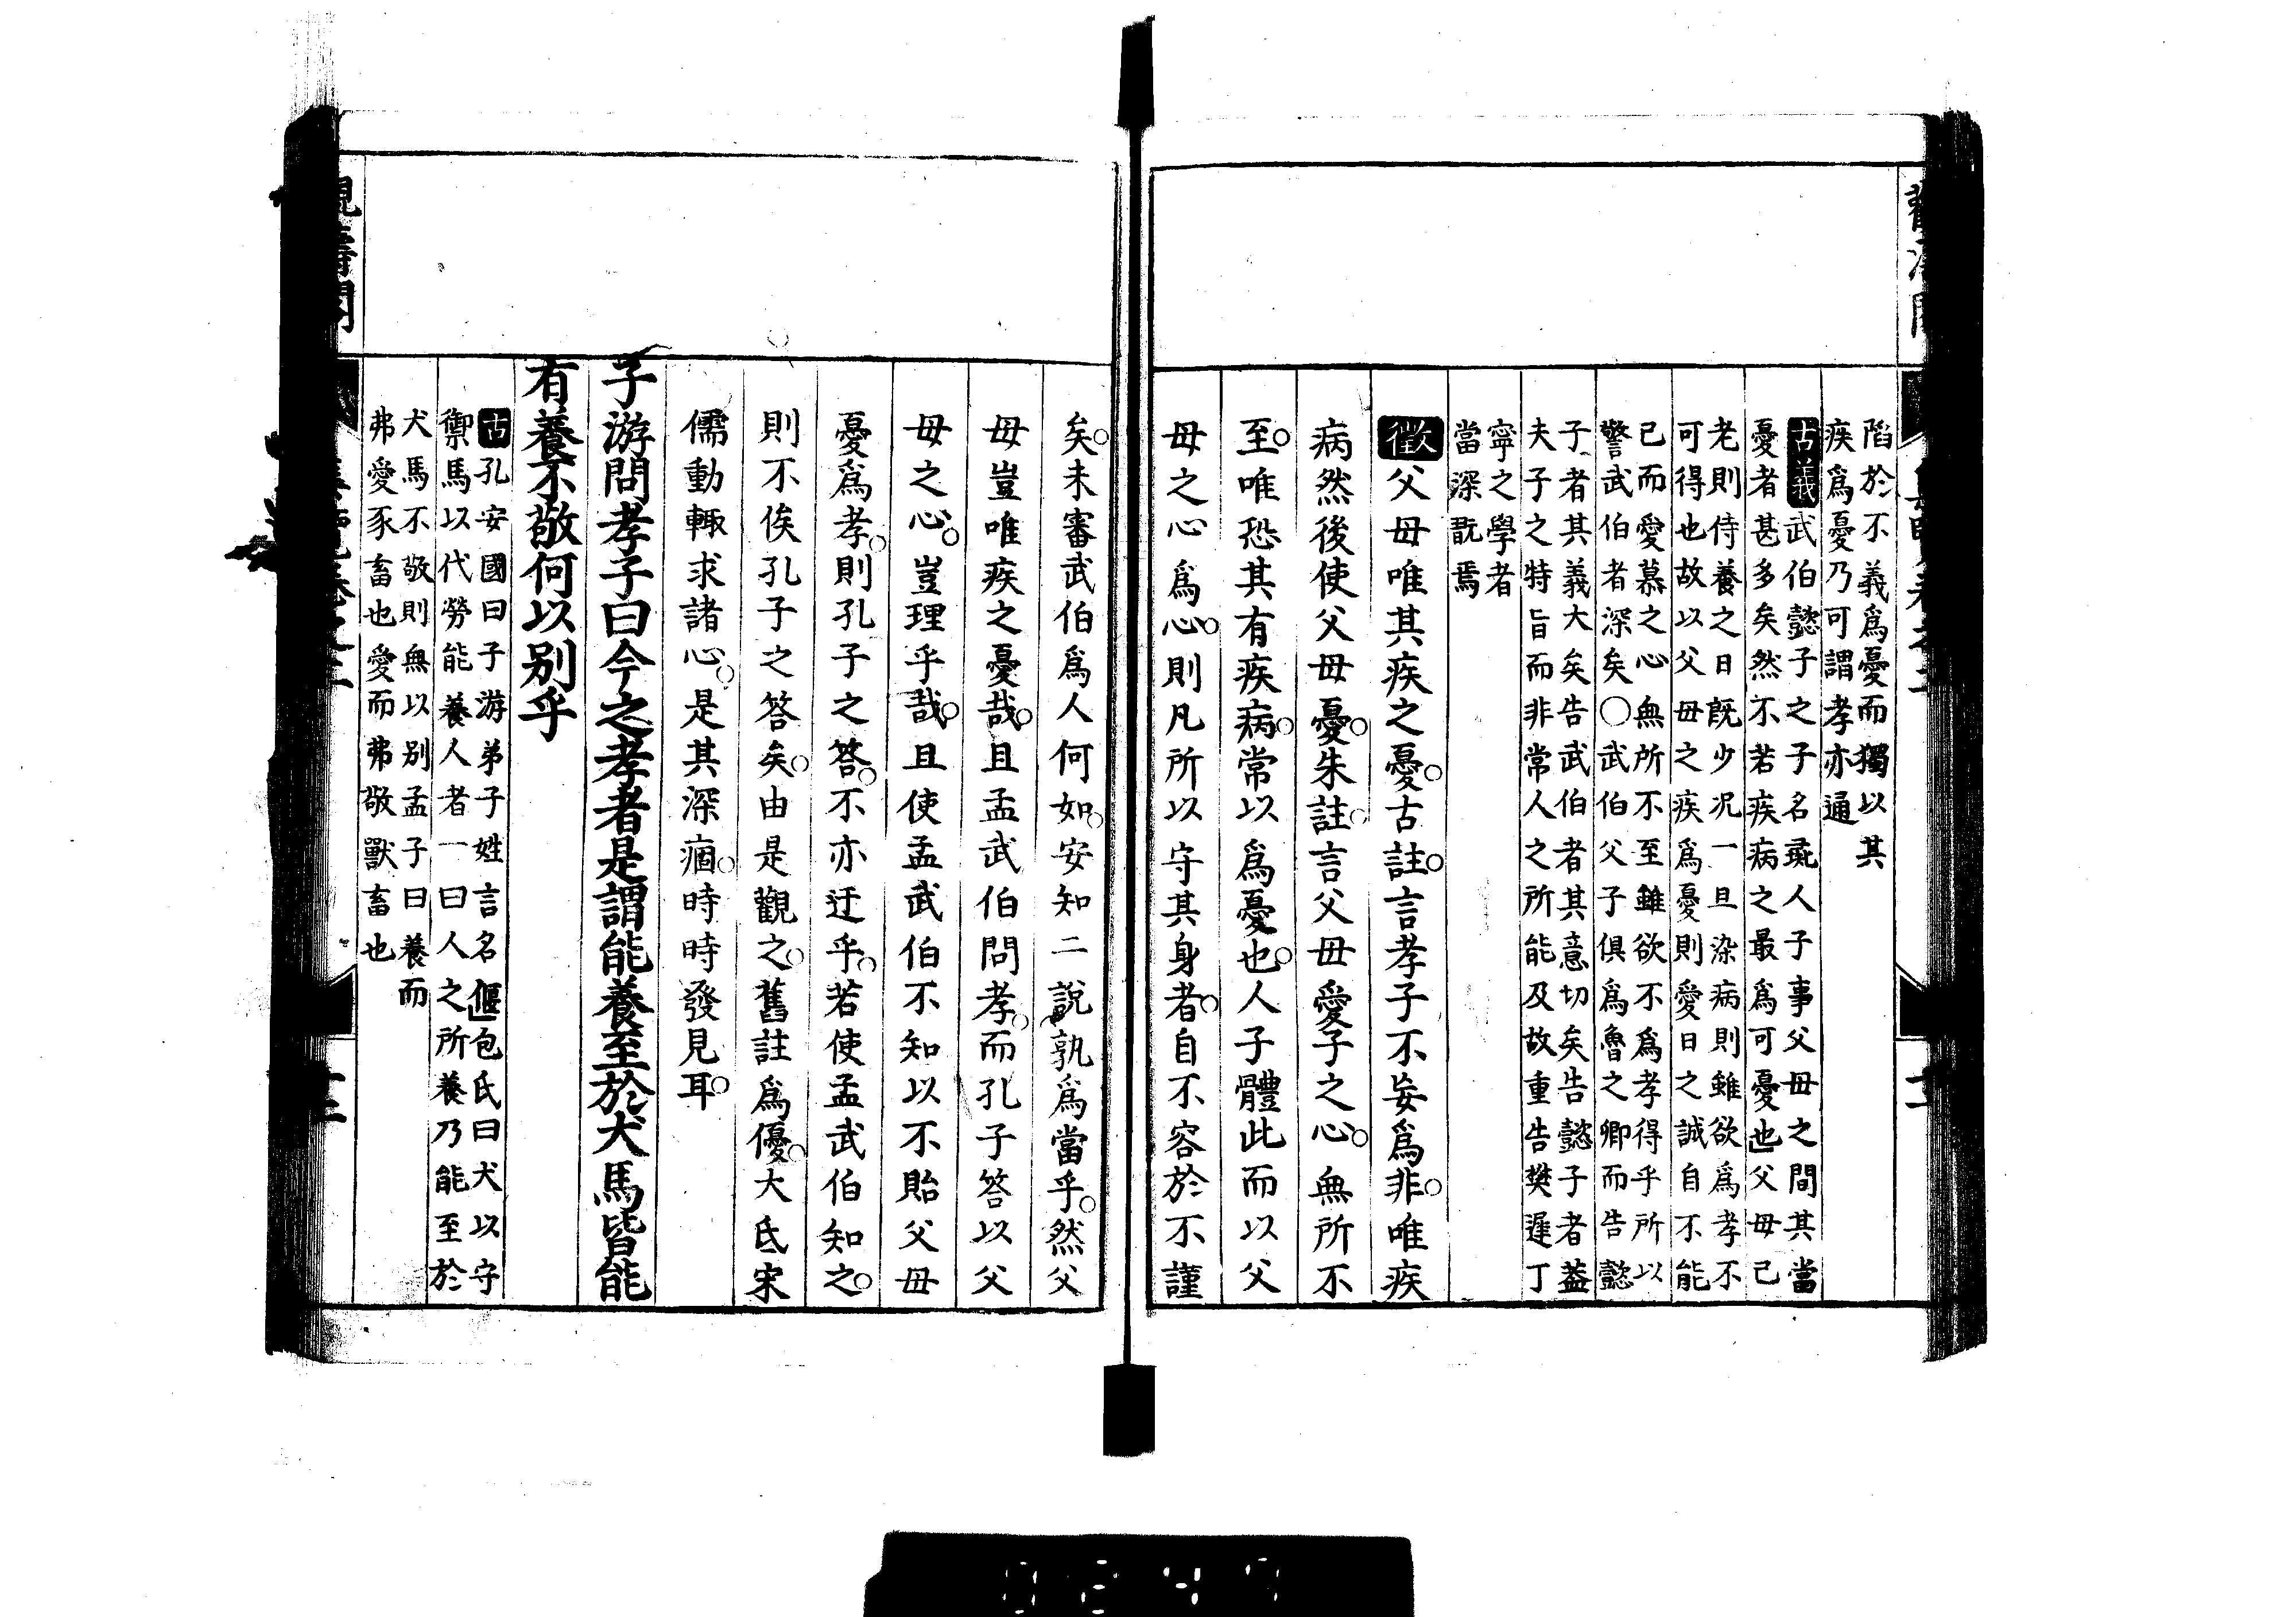 陷於不義爲憂而獨以其
疾爲憂乃可謂孝亦通
古義武伯懿子之子名彘人子事父母之間其當
憂者甚多矣然不若疾病之最爲可憂也父母己
老則侍養之日既少况一旦染病則雖欲爲孝不
可得也故以父母之疾爲憂則愛日之誠自不能
已而愛慕之心無所不至雖欲不爲孝得乎所以
警武伯者深矣○武伯父子俱爲魯之卿而告懿
子者其義大矣告武伯者其意切矣告懿子者葢
夫子之特旨而非常人之所能及故重告樊遲丁
寧之學者
當深翫焉
徵父母唯其疾之憂古註言孝子不妄爲非唯疾
病然後使父母憂朱註言父母愛子之心無所不
至唯恐其有疾病常以爲憂也人子體此而以父
母之心爲心則凡所以守其身者自不容於不謹
矣未審武伯爲人何如安知二說孰爲當乎然父
母豈唯疾之憂哉且孟武伯問孝而孔子答以父
母之心豈理乎哉且使孟武伯不知以不貽父母
憂爲孝則孔子之答不亦迂乎若使孟武伯知之
則不俟孔子之答矣由是觀之舊註爲優大氐宋
儒動輙求諸心是其深痼時時發見耳
子游問孝子曰今之孝者是謂能養至於犬馬皆能
有養不敬何以别乎
古孔安國曰子游弟子姓言名偃包氏曰犬以守
禦馬以代勞能養人者一曰人之所養乃能至於
犬馬不敬則無以别孟子曰養而
弗愛豕畜也愛而弗敬獸畜也